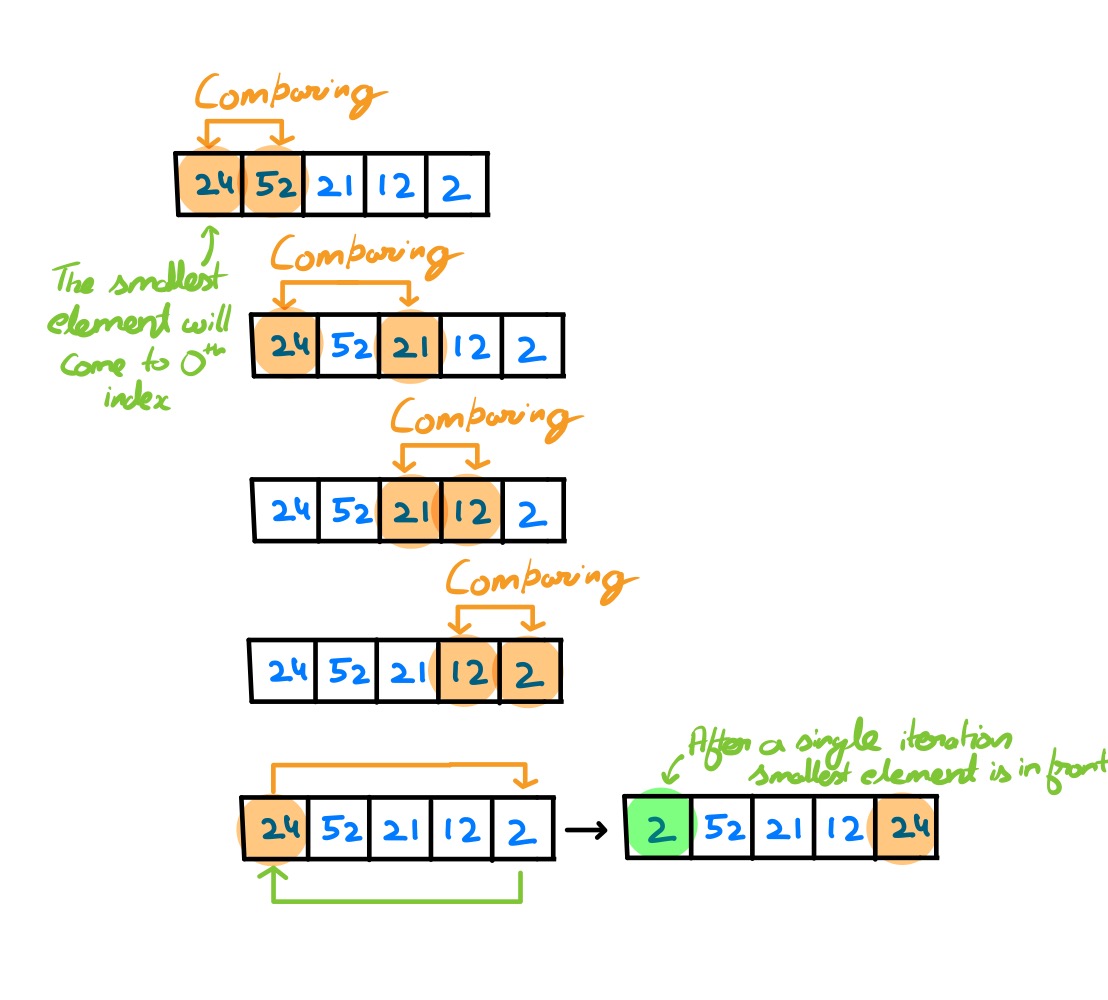 Comparing
24 52 21 12 2
The smallest
element will
come to 0th
index
Comparing
24 52 21 12 2
Comparing
24 52 21 12 2
Comparing
24 52 21 12 2
After a single iteration
smallest element is in front
24 52 21 12 2
2 52 21 12 24